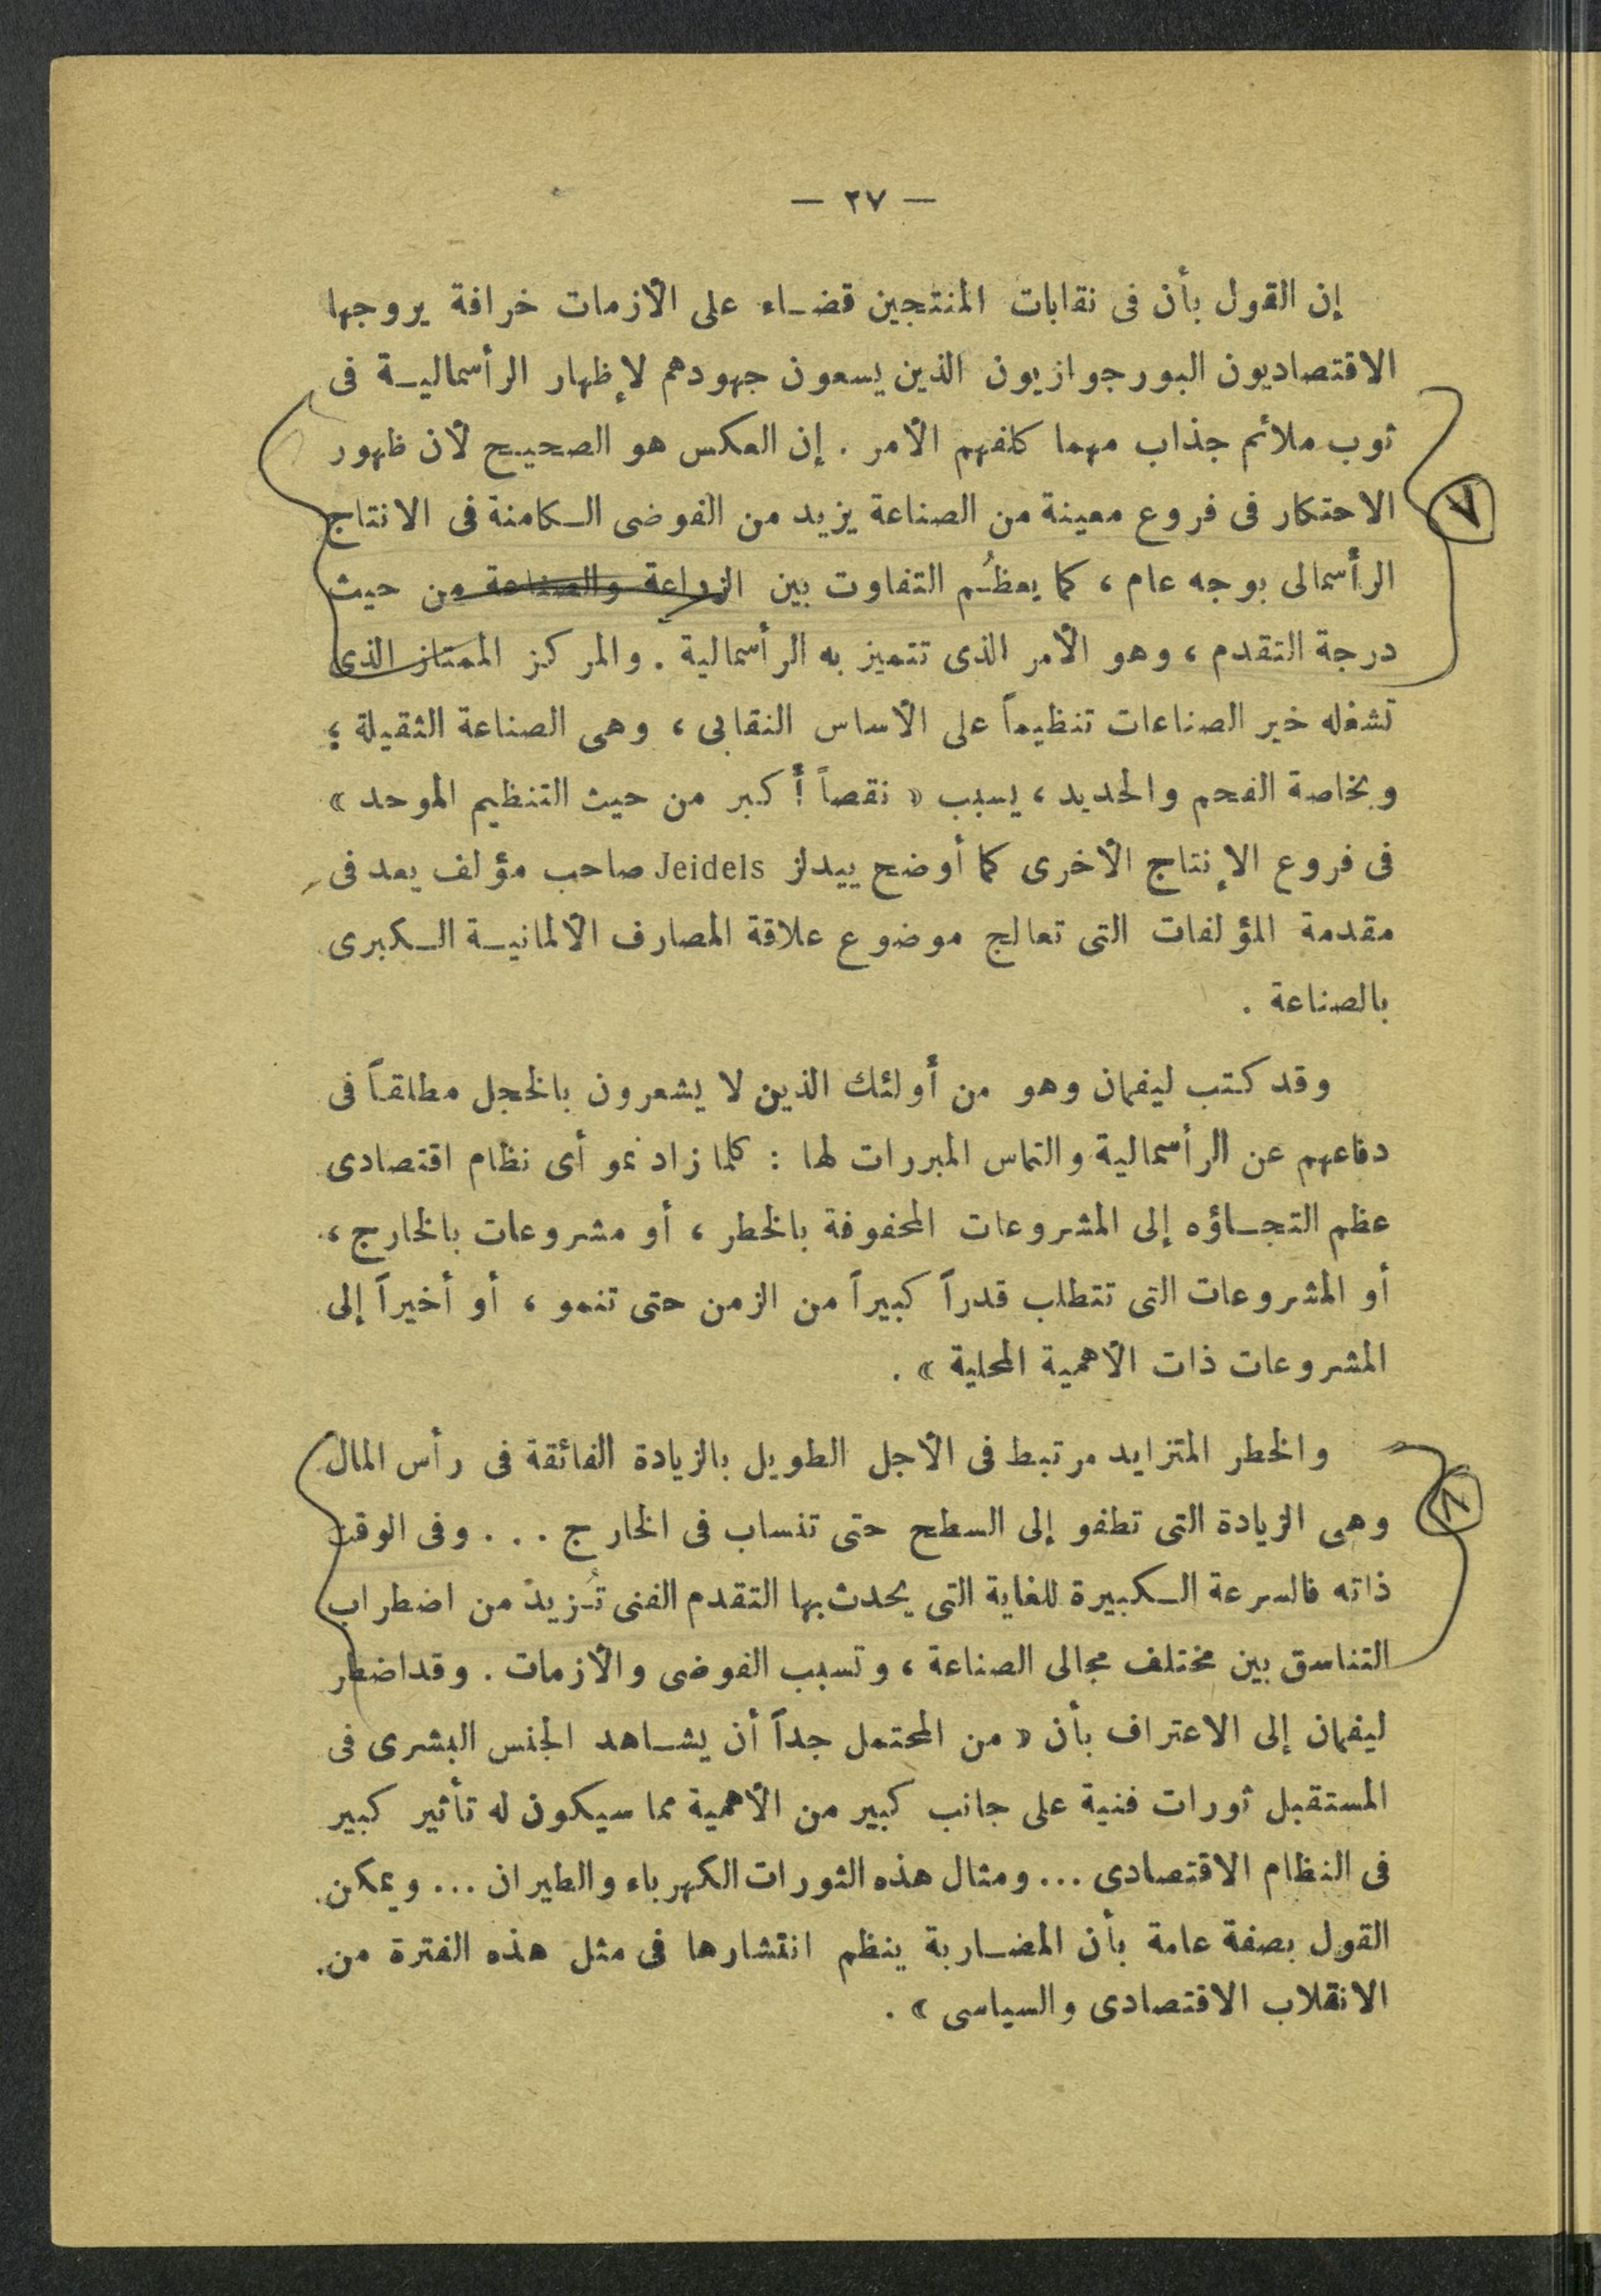 — ٢٧ —
إن القول بأن فى نقابات المنتجين قضاء على الأزمات خرافة يروجها
الاقتصاديون البورجوازيون الذين يسعون جهودهم لإظهار الرأسمالية فى
ثوب ملائم جذاب مهما كلفهم الأمر . إن العكس هو الصحيح لأن ظهور
٧
الاحتكار فى فروع معينة من الصناعة يزيد من الفوضى الكامنة فى الانتاج
الرأسمالى بوجه عام ، كما يعظُم التفاوت بين الزراعة والصناعة من حيث
درجة التقدم ، وهو الأمر الذى تتميز به الرأسمالية . والمركز الممتاز الذى
تشغله خير الصناعات تنظيماً على الأساس النقابى ، وهى الصناعة الثقيلة ؛
وبخاصة الفحم والحديد ، يسبب « نقصاً أكبر من حيث التنظيم الموحد »
فى فروع الإنتاج الأخرى كما أوضح ييدلز Jeidels صاحب مؤلف يعد فى
مقدمة المؤلفات التى تعالج موضوع علاقة المصارف الألمانية الكبرى
بالصناعة .
وقد كتب ليفمان وهو من أولئك الذين لا يشعرون بالخجل مطلقاً فى
دفاعهم عن الرأسمالية والتماس المبررات لها : كلما زاد نمو أى نظام اقتصادى
عظم التجاؤه إلى المشروعات المحفوفة بالخطر ، أو مشروعات بالخارج ،
أو المشروعات التى تتطلب قدراً كبيراً من الزمن حتى تنمو ، أو أخيراً إلى
المشروعات ذات الأهمية المحلية » .
والخطر المتزايد مرتبط فى الأجل الطويل بالزيادة الفائقة فى رأس المال
٨
وهى الزيادة التى تطفو إلى السطح حتى تنساب فى الخارج . . . وفى الوقت
ذاته فالسرعة الكبيرة للغاية التى يحدث بها التقدم الفنى تُزيد من اضطراب
التناسق بين مختلف مجالى الصناعة ، وتسبب الفوضى والأزمات . وقد اضطر
ليفمان إلى الاعتراف بأن « من المحتمل جداً أن يشاهد الجنس البشرى فى
المستقبل ثورات فنية على جانب كبير من الأهمية مما سيكون له تأثير كبير
فى النظام الاقتصادى ... ومثال هذه الثورات الكهرباء والطيران ... ويمكن
القول بصفة عامة بأن المضاربة ينظم انتشارها فى مثل هذه الفترة من
الانقلاب الاقتصادى والسياسى » .